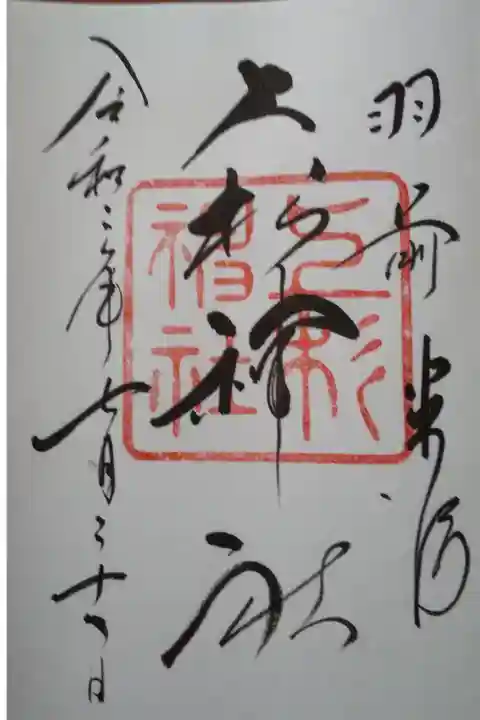 羽前米沢
上杉神社
令和三年七月三十一日
上杉
神社